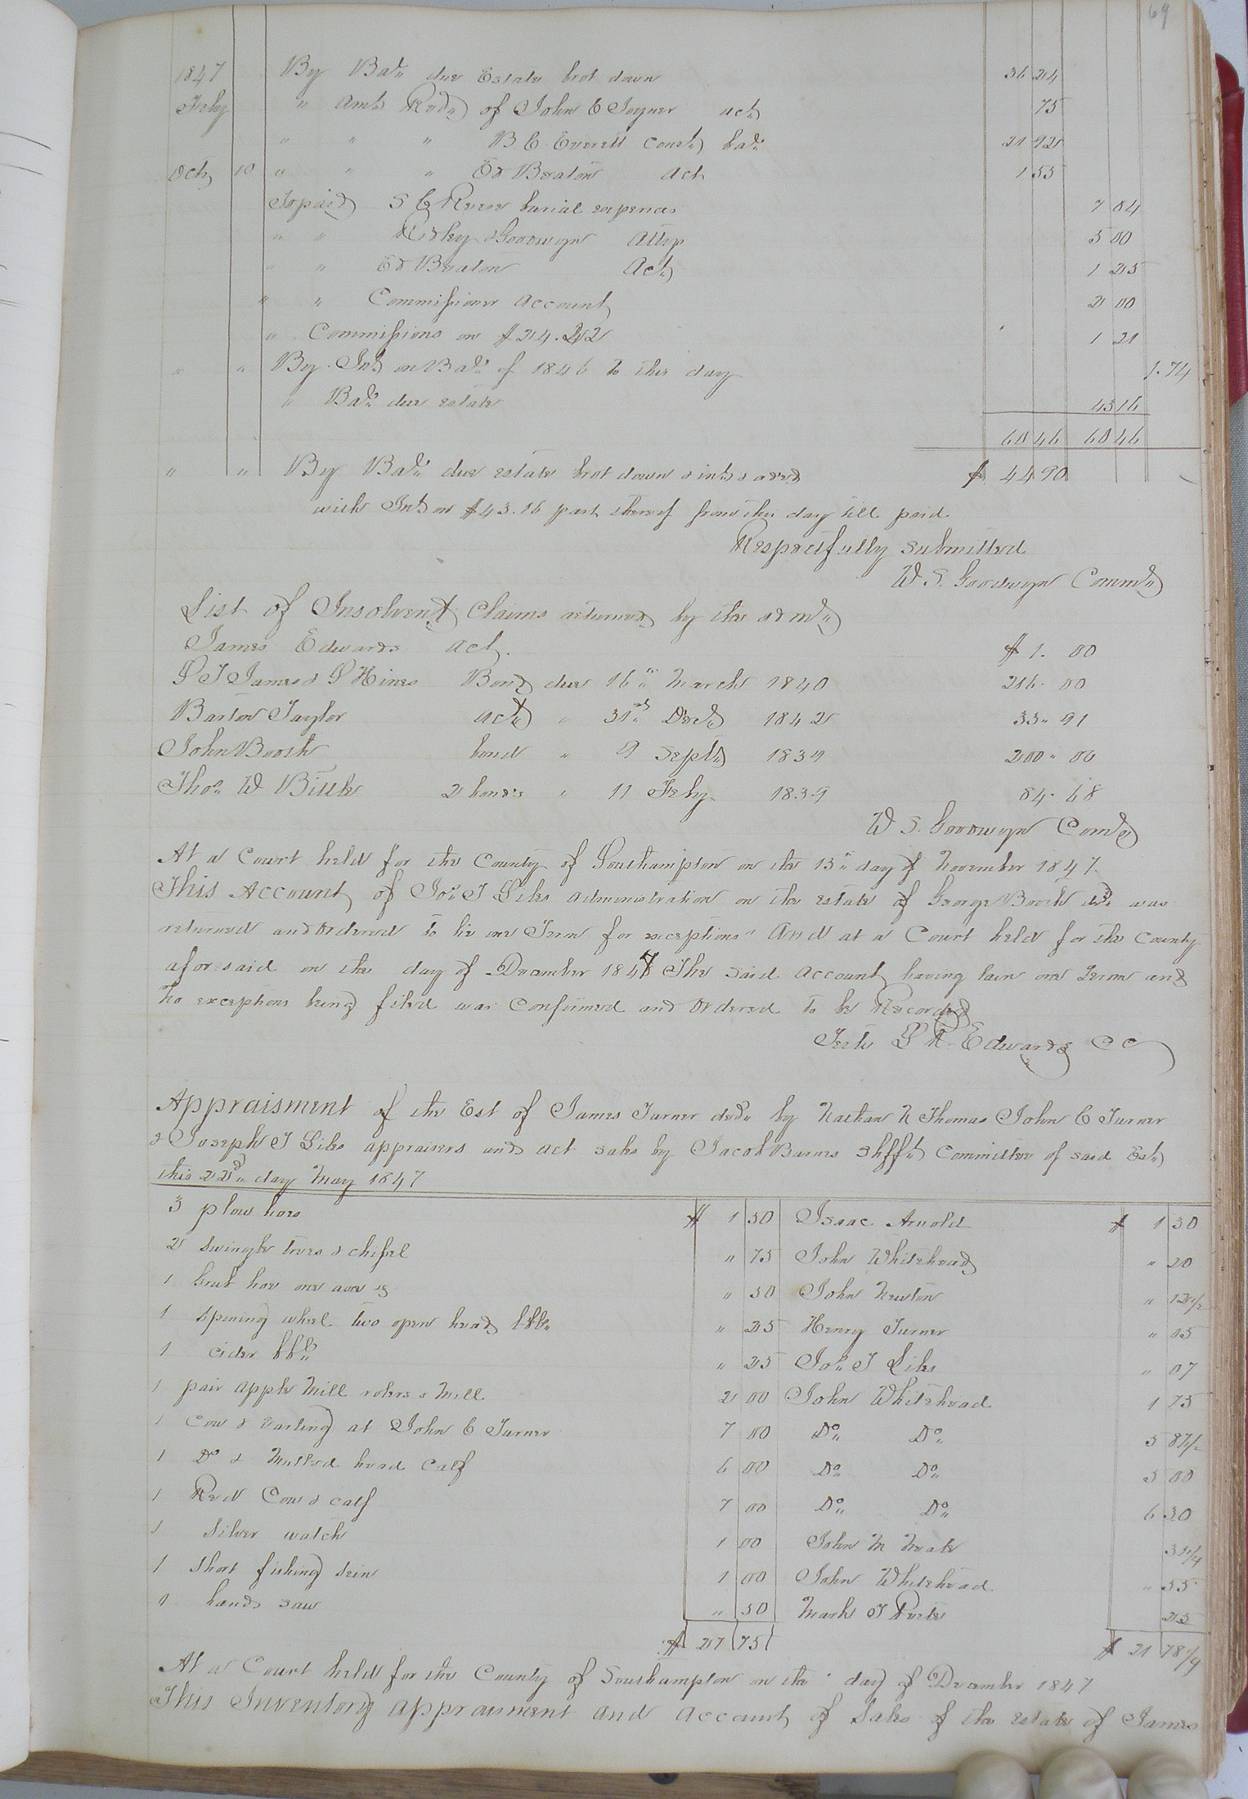 69
1847 By Bal. due Estate brot down 36 24
Feby " Amt Recd of John C Joyner act 75
" " " B C Everett const. bal. 21 92
Octr 10 " " " Ed Beaton Act 1 55
To paid S C Reese burial expences 7 84
" " Ridley & Goodwyn Atty 5 00
" " Ed Beaton Act 1 25
" " Commissioner Account 2 00
" Commissions on $24.22 1 21
" " By Int on Bal. of 1846 to this day 1.74
" Bal. due estate 43 16
60 46 60 46
" " By Bal. due estate brot down & int. added $ 44 90
with Int on $43.16 part thereof from this day till paid
Respectfully Submitted
W. S. Goodwyn Comm.
List of Insolvent Claims returned by the adm.
James Edwards act. $ 1. 00
James & Hines Bond due 16th March 1840 216. 00
Barton Taylor act " 31st Decr 1842 33. 91
John Booth bond " 9 Septr 1839 200. 00
Thos. W Bittle 2 bonds " 11 Feby 1839 84. 68
W. S. Goodwyn Com.
At a Court held for the County of Southampton on the 15th day of November 1847.
This Account of Jos. T Liles administration on the estate of George Booth dcd. was
returned and Ordered to lie one Term for exceptions" And at a Court held for the County
aforesaid on the day of December 1847 The said account having lain one Term and
no exceptions being filed was Confirmed and Ordered to be Recorded
Teste L R Edwards CC
Appraisment of the Est of James Turner decd. by Nathan N Thomas John C Turner
& Joseph T Liles appraisers and act sales by Jacob Barnes Shff Committee of said Est
this 22d day May 1847
3 plow hoes $ 1 50 Isaac Arnold $ 1 30
2 Swingle trees & chisel " 75 John Whitehead " 20
1 Grub hoe one " 50 John Newton " 12 1/2
1 Spining wheel two open head bbls " 25 Henry Turner " 05
1 cider bbl. " 25 Jos. T Liles " 07
1 pair apple Mill rolers & Mill 2 00 John Whitehead 1 75
1 Cow & Yearling at John C Turner 7 00 Do. Do. 5 87 1/2
1 Do & Mulled head Calf 6 00 Do. Do. 5 00
1 Red Cow & calf 7 00 Do. Do. 6 30
1 Silver watch 1 00 John M 31 1/4
1 Short fishing Sein 1 00 John Whitehead " 55
1 hand saw " 50 Mark 25
$ 27 75 $ 21 78 1/4
At a Court held for the County of Southampton on the day of December 1847
This Inventory appraisment and Account of Sales of the estate of James